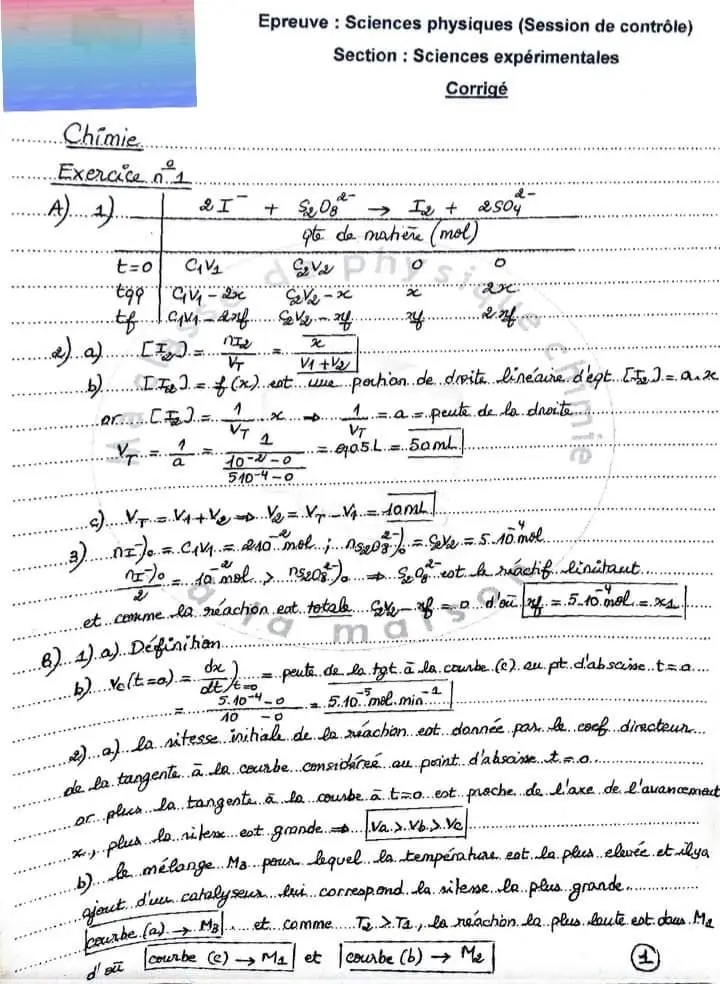 Epreuve : Sciences physiques (Session de contrôle)
Section : Sciences expérimentales
Corrigé
Chimie
Exercice n°1
A) 1) 2I⁻ + S₂O₈²⁻ → I₂ + 2SO₄²⁻
qté de matière (mol)
t=0 C₁V₁ C₂V₂ 0 0
tqq C₁V₁-2x C₂V₂-x x 2x
tf C₁V₁-2xf C₂V₂-xf xf 2xf
2) a) [I₂] = nI₂/VT = x/(V1+V2)
b) [I₂] = f(x) est une portion de droite linéaire d'eqt [I₂] = a.x
or [I₂] = 1/VT . x ⇒ 1/VT = a = pente de la droite
VT = 1/a = 1/((10⁻²-0)/(5.10⁻⁴-0)) = 0,05L = 50mL
c) VT = V1+V2 ⇒ V2 = VT-V1 = 10mL
3) nI⁻)₀ = C₁V₁ = 2.10⁻² mol ; nS₂O₈²⁻)₀ = C₂V₂ = 5.10⁻⁴ mol
nI⁻)₀/2 = 10⁻² mol > nS₂O₈²⁻)₀ ⇒ S₂O₈²⁻ est le réactif limitant
et comme la réaction est totale C₂V₂-xf = 0 d'où xf = 5.10⁻⁴ mol = x1
B) 1) a) Définition
b) Vc(t=0) = dx/dt)t=0 = pente de la tgt à la courbe (c) au pt d'abscisse t=0
= (5.10⁻⁴-0)/(10-0) = 5.10⁻⁵ mol.min⁻¹
2) a) la vitesse initiale de la réaction est donnée par le coef directeur
de la tangente à la courbe considérée au point d'abscisse t=0
or plus la tangente à la courbe à t=0 est proche de l'axe de l'avancement
x, plus la vitesse est grande ⇒ Va > Vb > Vc
b) le mélange M3 pour lequel la température est la plus élevée et il ya
ajout d'un catalyseur lui correspond la vitesse la plus grande
courbe (a) → M3 et comme T2 > T1, la réaction la plus lente est dans M1
d'où courbe (c) → M1 et courbe (b) → M2
1
classe de physique chimie
à la maison